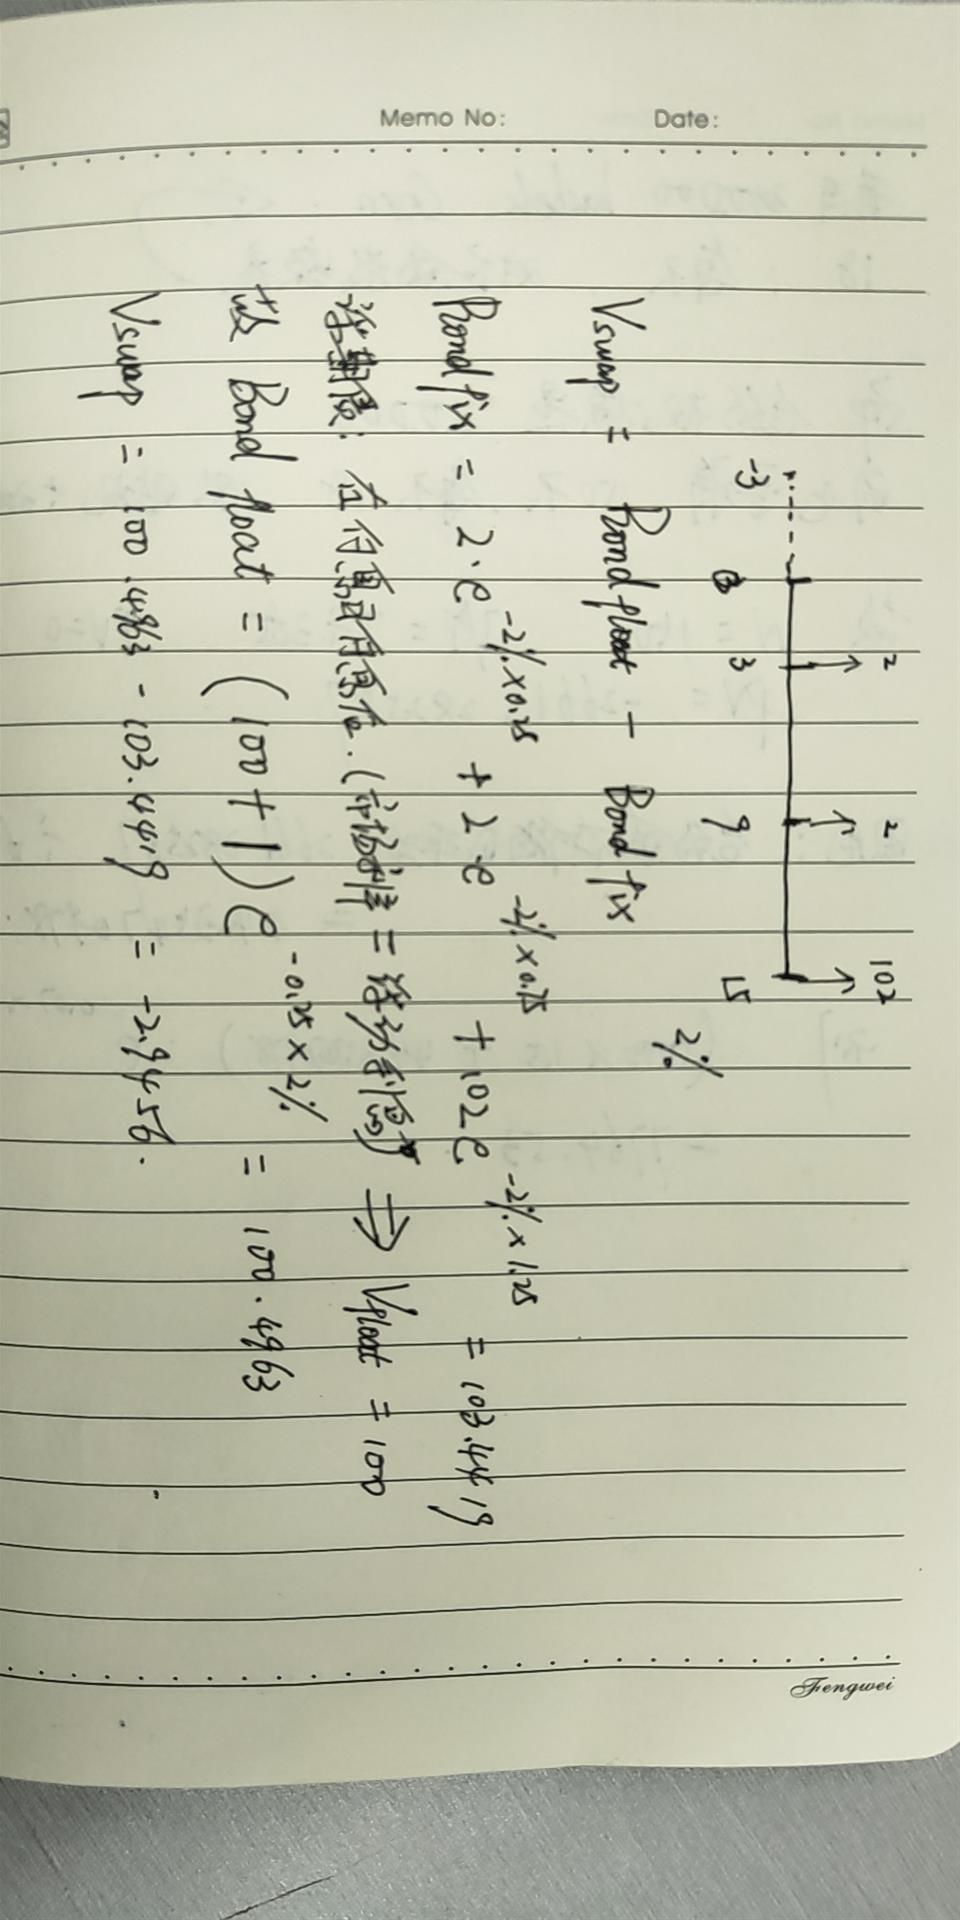 Memo No:
Date:
2 2 102
-3 0 3 9 15 2%
Vswap = Bond float - Bond fix
Bond fix = 2·e^-2%×0.25 + 2e^-2%×0.75 + 102e^-2%×1.25 = 103.4419
浮动债: 在付息日付息后.(市场利率=浮动利息) ⇒ Vfloat = 100
故 Bond float = (100+1)e^-0.25×2% = 100.4963
Vswap = 100.4963 - 103.4419 = -2.9456.
Fengwei